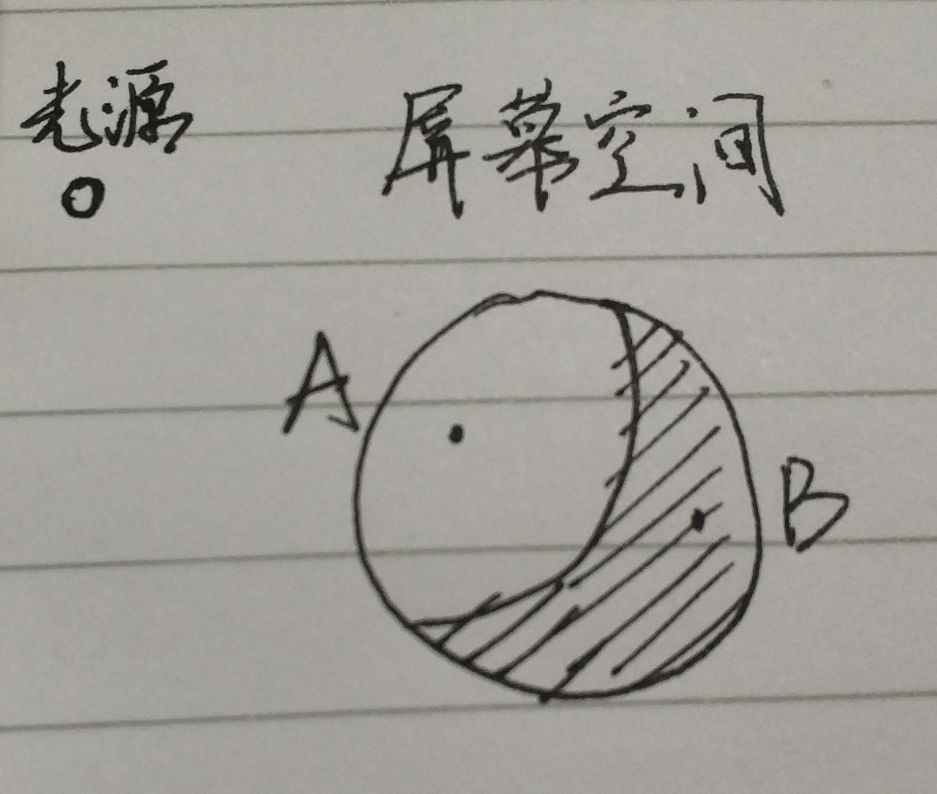 光源 屏幕空间
A
B